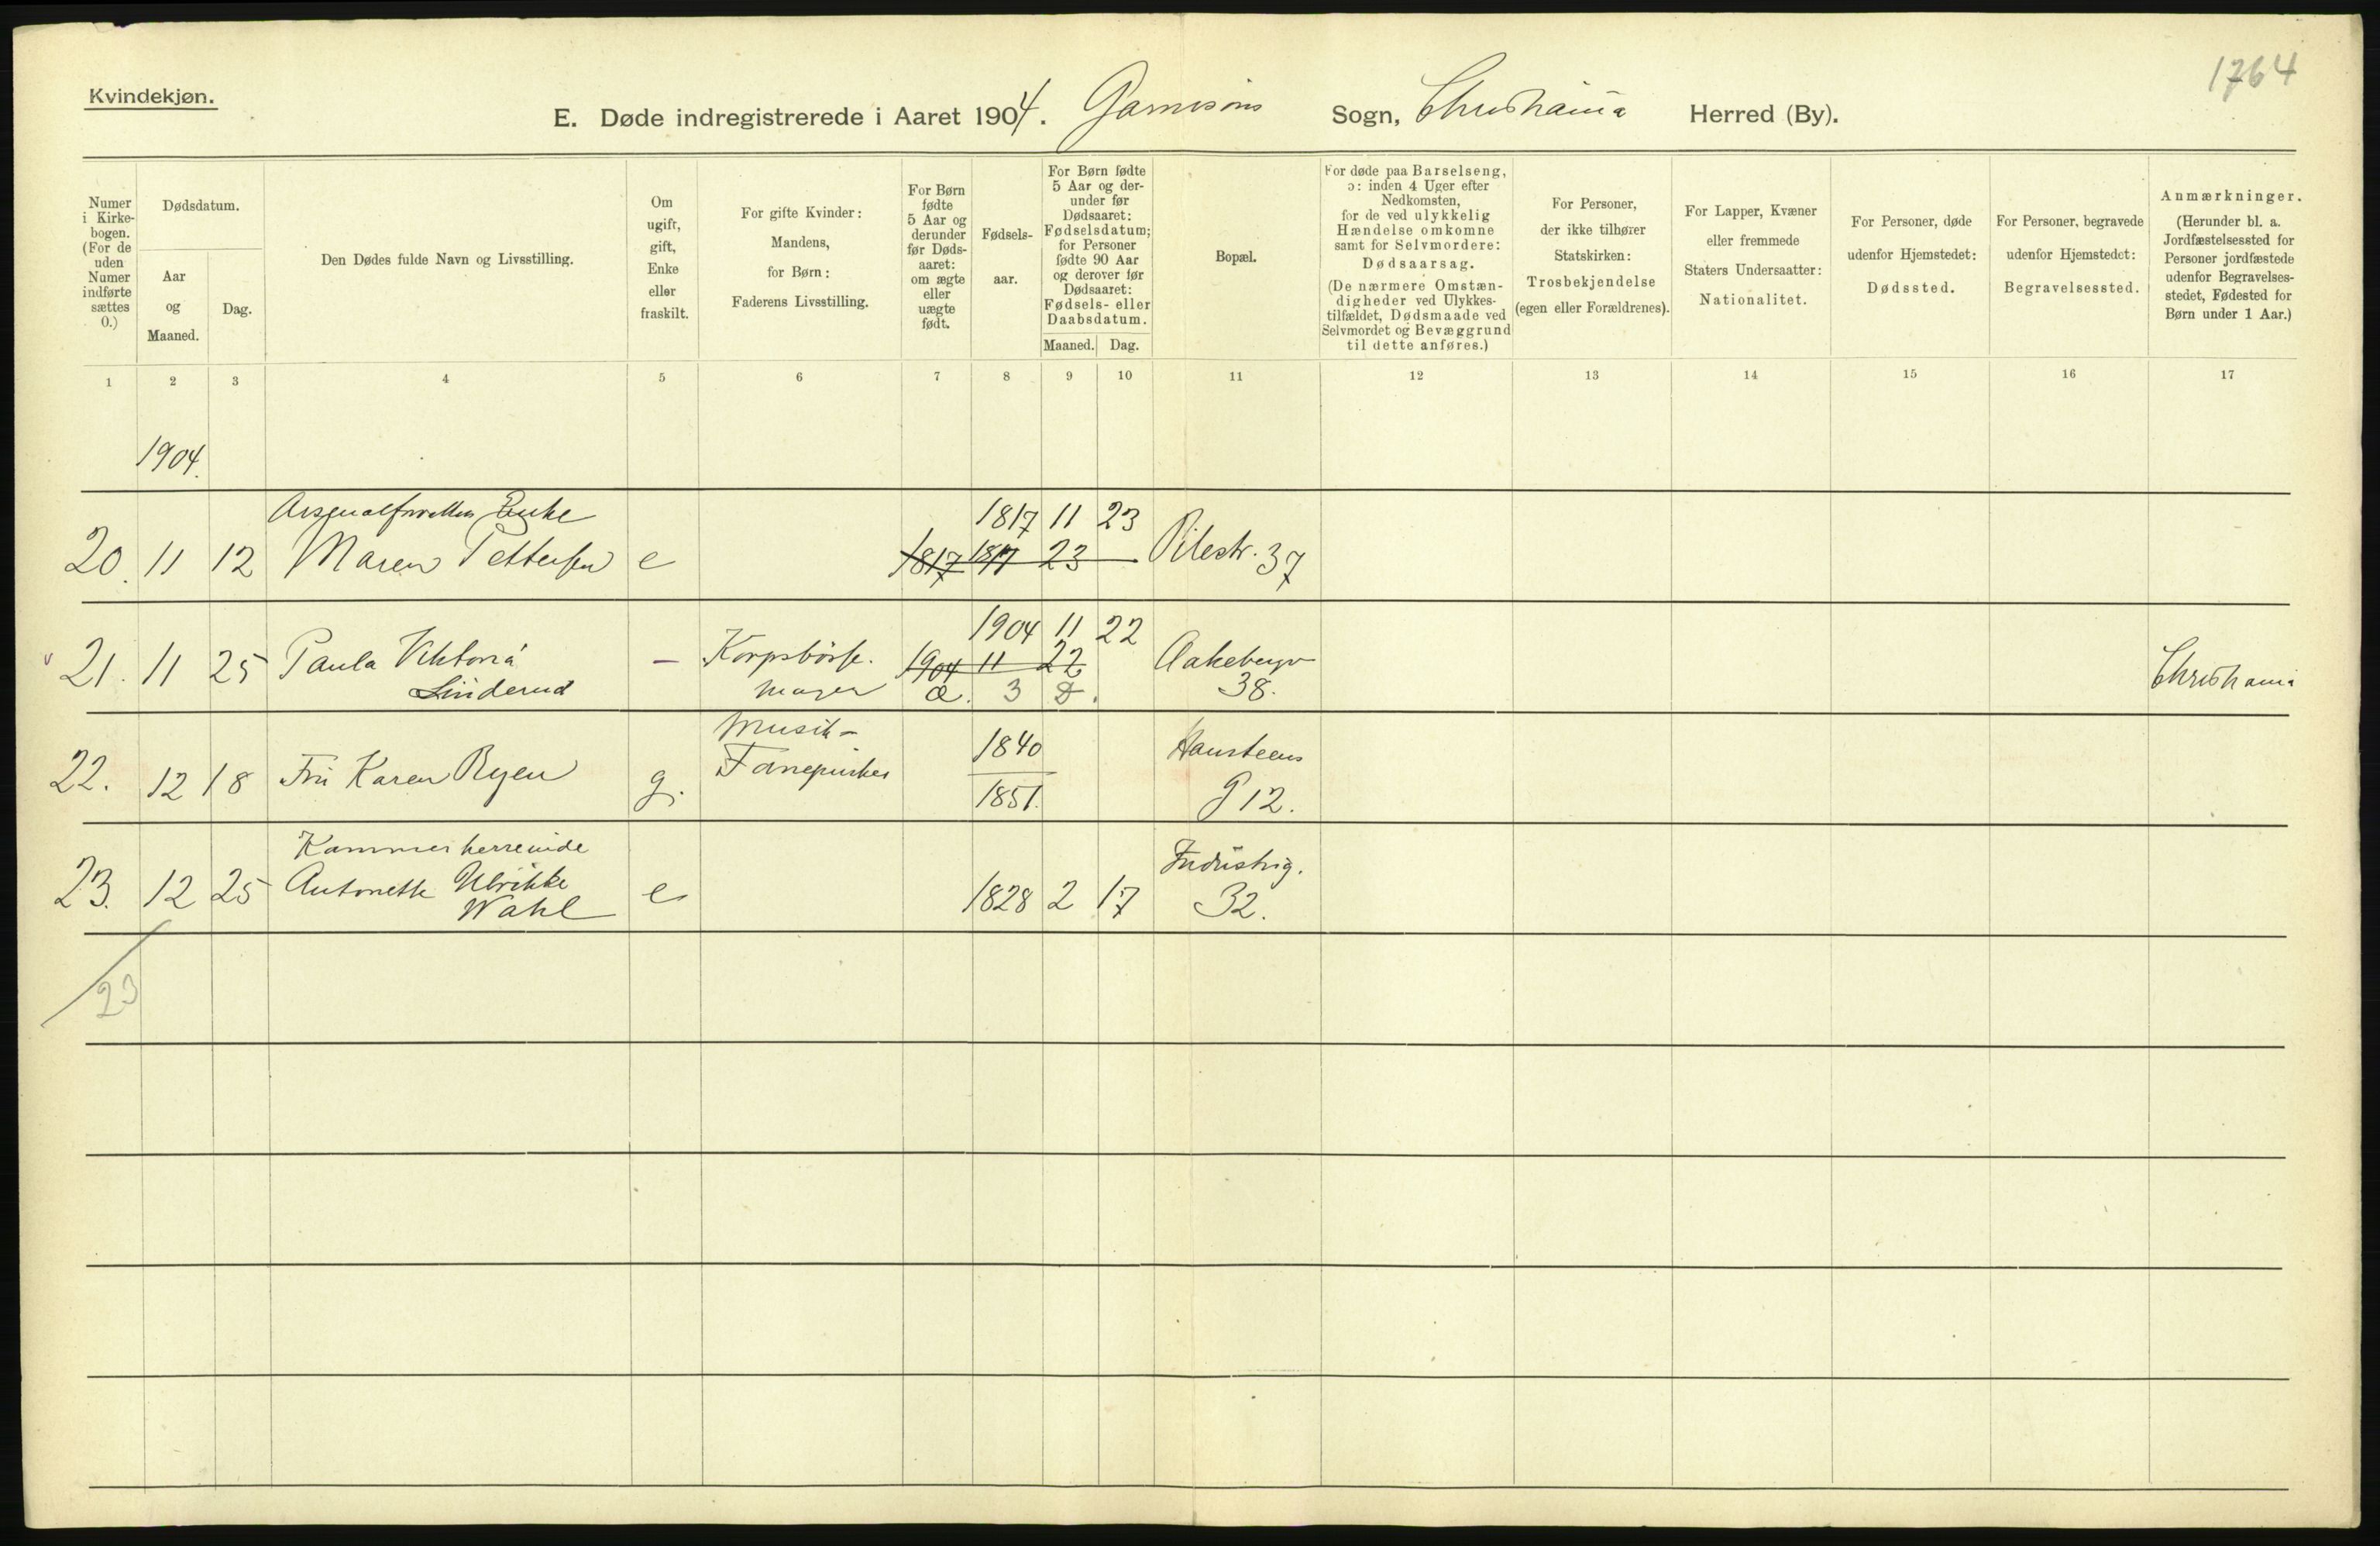 1764
Kvindekjøn.
E. Døde indregistrerede i Aaret 1904. Garnisons Sogn, Christiania Herred (By).
Numer
i Kirke-
bogen.
(For de
uden
Numer
indførte
sættes
0.)
Dødsdatum.
Aar
og
Maaned.
Dag.
Den Dødes fulde Navn og Livsstilling.
Om
ugift,
gift,
Enke
eller
fraskilt.
For gifte Kvinder:
Mandens,
for Børn:
Faderens Livsstilling.
For Børn
fødte
5 Aar og
derunder
før Døds-
aaret:
om ægte
eller
uægte
født.
Fødsels-
aar.
For Børn fødte
5 Aar og der-
under før
Dødsaaret:
Fødselsdatum;
for Personer
fødte 90 Aar
og derover før
Dødsaaret:
Fødsels- eller
Daabsdatum.
Maaned. Dag.
Bopæl.
For døde paa Barselseng,
ɔ: inden 4 Uger efter
Nedkomsten,
for de ved ulykkelig
Hændelse omkomne
samt for Selvmordere:
Dødsaarsag.
(De nærmere Omstæn-
digheder ved Ulykkes-
tilfældet, Dødsmaade ved
Selvmordet og Bevæggrund
til dette anføres.)
For Personer,
der ikke tilhører
Statskirken:
Trosbekjendelse
(egen eller Forældrenes).
For Lapper, Kvæner
eller fremmede
Staters Undersaatter:
Nationalitet.
For Personer, døde
udenfor Hjemstedet:
Dødssted.
For Personer, begravede
udenfor Hjemstedet:
Begravelsessted.
Anmærkninger.
(Herunder bl. a.
Jordfæstelsessted for
Personer jordfæstede
udenfor Begravelses-
stedet, Fødested for
Børn under 1 Aar.)
1 2 3 4 5 6 7 8 9 10 11 12 13 14 15 16 17
1904.
Enke 1817 11 23
20. 11 12 Maren Pettersen e 1817 1817 23 Pilestr. 37
1904 11 22
21. 11 25 Paula Viktoria - Korpsbösse. 1904 11 22 Aakebergv
Linderud mager 3 38. Christiania
Musik-
22. 12 18 Fru Karen Ryen g. 1840 Hausteens
1851. g 12.
Kammerherreinde
23. 12 25 Antonette Ulrikke e 1828 2 17 Industrig.
Wahl 32.
23